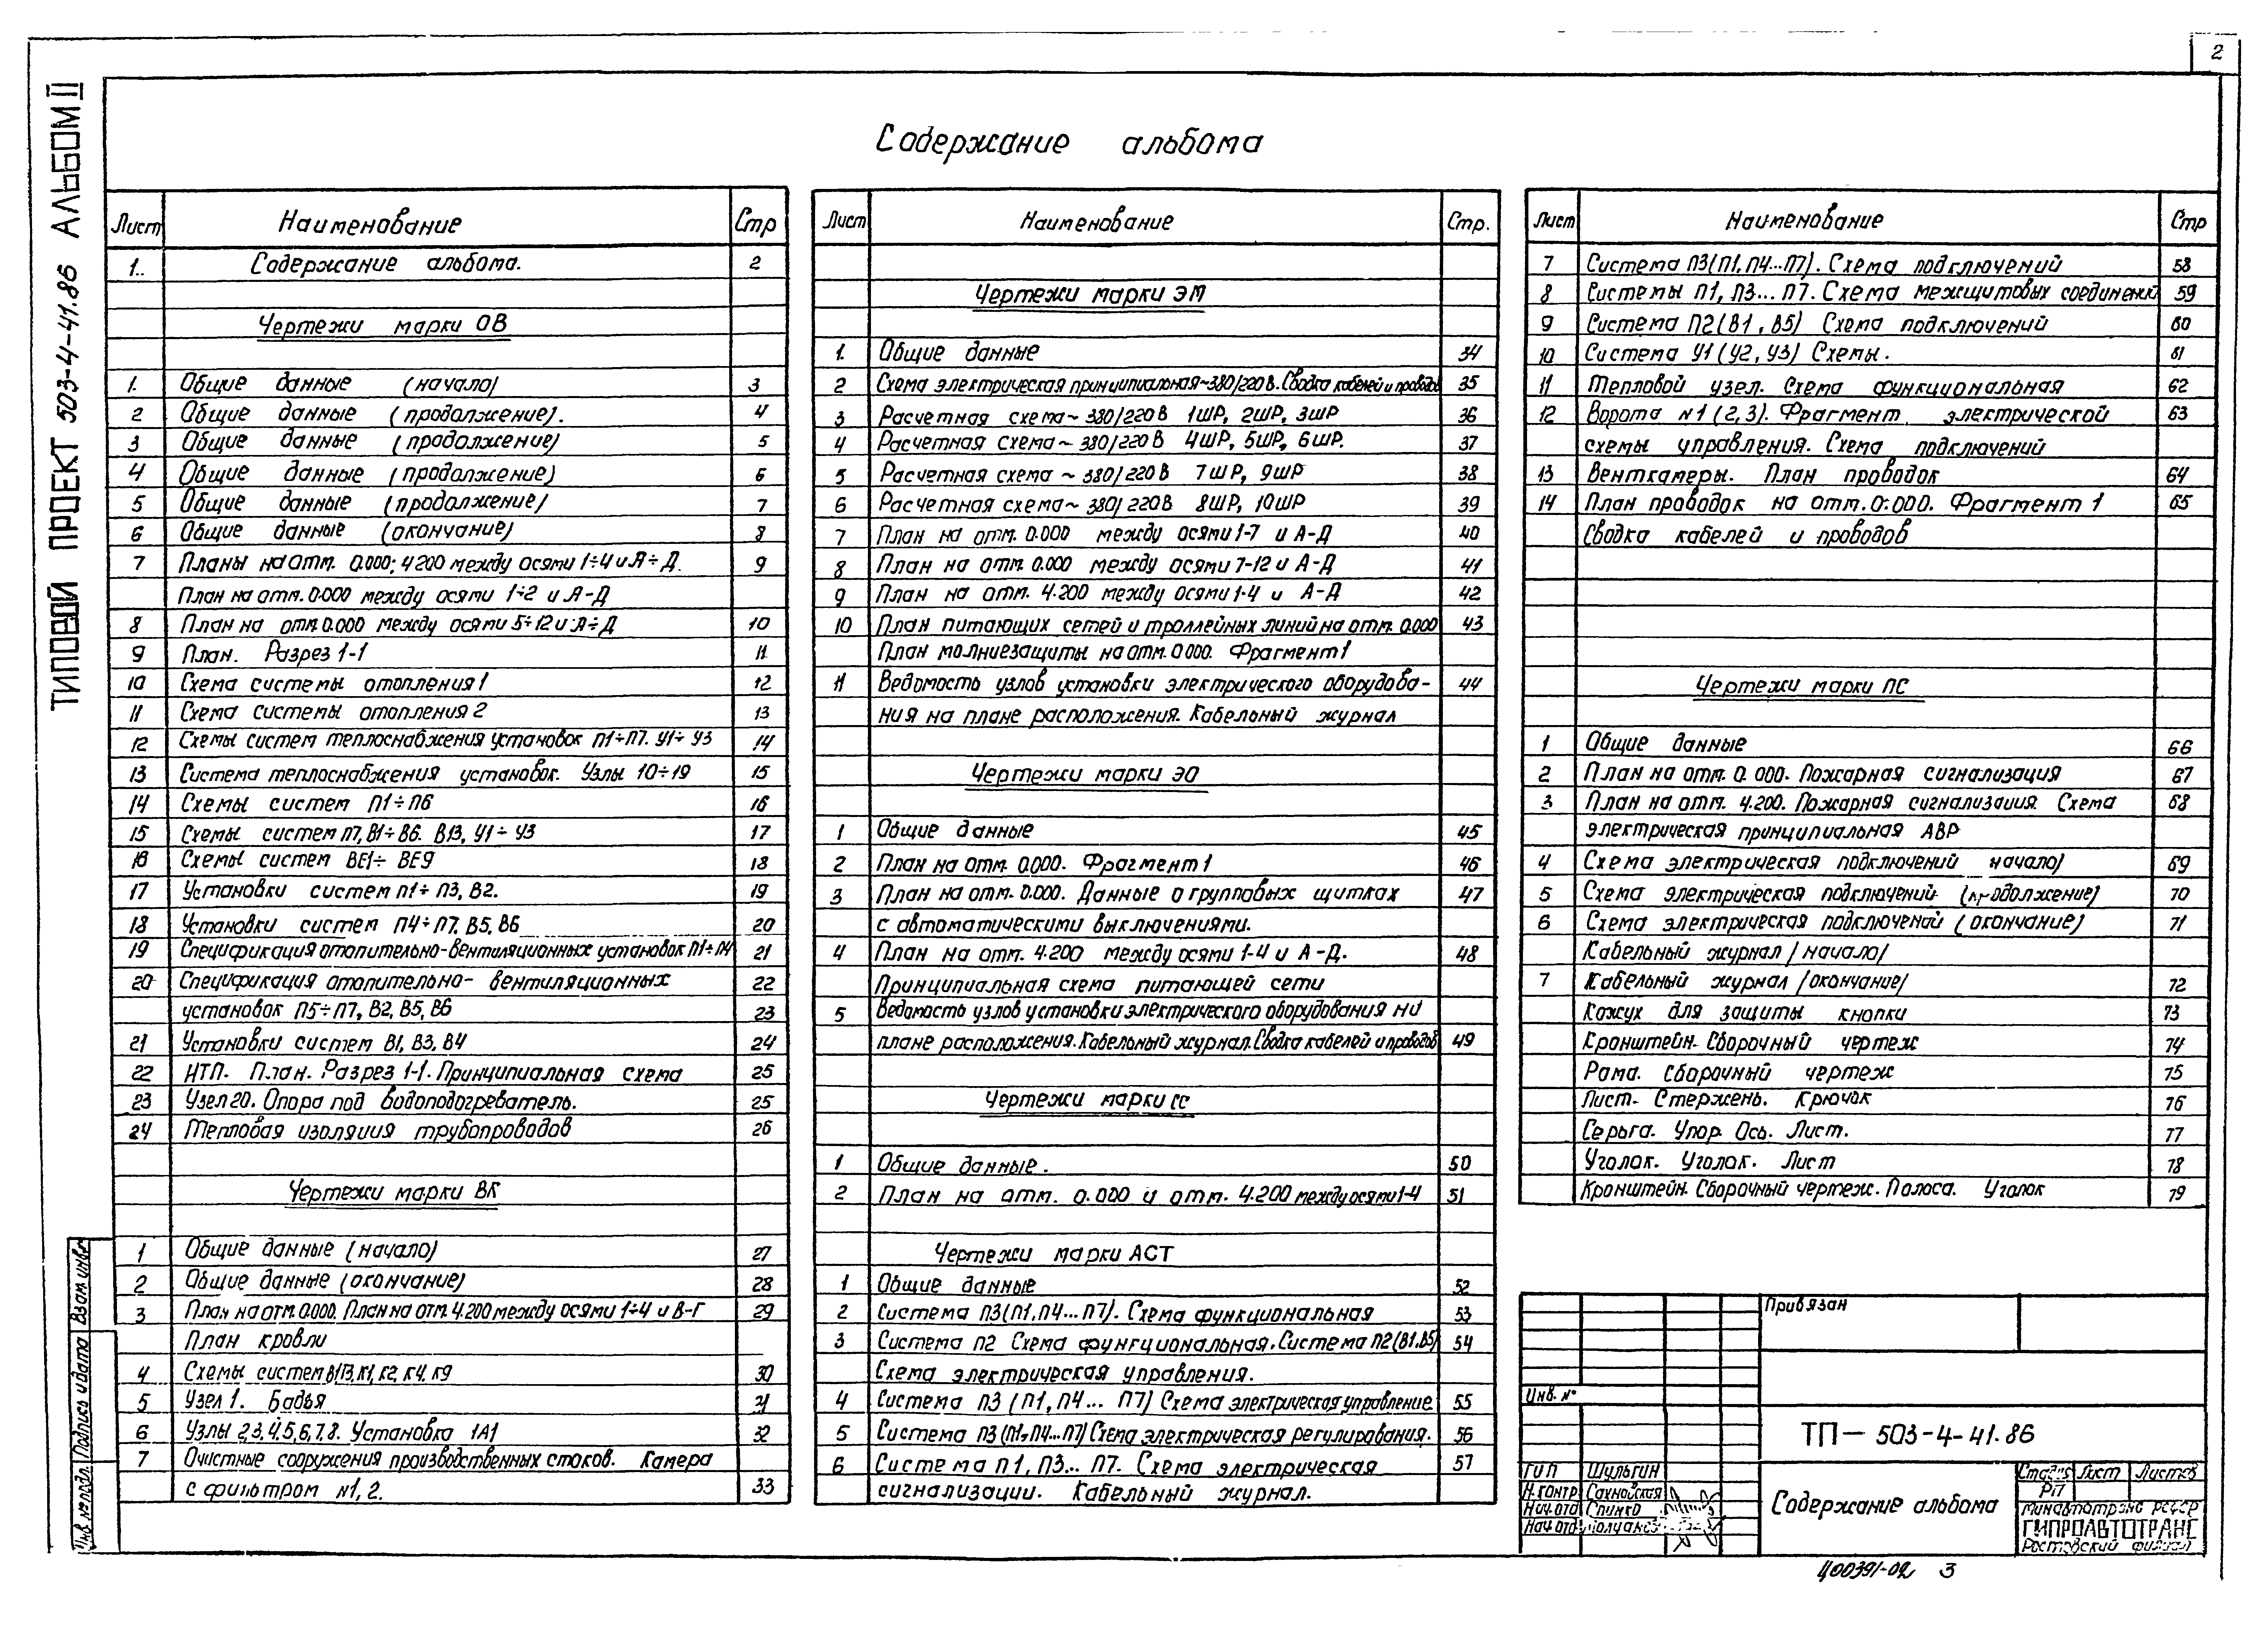 2
ТИПОВОЙ ПРОЕКТ 503-4-41.86 АЛЬБОМ II
Содержание альбома
Лист Наименование Стр
1.. Содержание альбома. 2
Чертежи марки ОВ
1. Общие данные (начало) 3
2 Общие данные (продолжение). 4
3 Общие данные (продолжение) 5
4 Общие данные (продолжение) 6
5 Общие данные (продолжение) 7
6 Общие данные (окончание) 8
7 Планы на отм. 0.000; 4200 между осями 1÷4 и А÷Д. 9
План на отм. 0.000 между осями 1÷2 и А-Д
8 План на отм. 0.000 между осями 5÷12 и А÷Д 10
9 План. Разрез 1-1 11
10 Схема системы отопления 1 12
11 Схема системы отопления 2 13
12 Схемы систем теплоснабжения установок П1÷П7. У1÷У3 14
13 Система теплоснабжения установок. Узлы 10÷19 15
14 Схемы систем П1÷П6 16
15 Схемы систем П7, В1÷В6. В13, У1÷У3 17
16 Схемы систем ВЕ1÷ВЕ9 18
17 Установки систем П1÷П3, В2. 19
18 Установки систем П4÷П7. В5, В6 20
19 Спецификация отопительно-вентиляционных установок П1÷П4 21
20 Спецификация отопительно-вентиляционных 22
установок П5÷П7, В2, В5, В6 23
21 Установки систем В1, В3, В4 24
22 ИТП. План. Разрез 1-1. Принципиальная схема 25
23 Узел 20. Опора под водоподогреватель. 25
24 Тепловая изоляция трубопроводов 26
Чертежи марки ВК
1 Общие данные (начало) 27
2 Общие данные (окончание) 28
3 План на отм. 0.000. План на отм. 4.200 между осями 1÷4 и В-Г 29
План кровли
4 Схемы систем В1, К1, К2, К4, К9 30
5 Узел 1. Бадья 31
6 Узлы 2,3,4,5,6,7,8. Установка 1А1 32
7 Очистные сооружения производственных стоков. Камера
с фильтром №1, 2. 33
Лист Наименование Стр.
Чертежи марки ЭМ
1. Общие данные 34
2 Схема электрическая принципиальная ~380/220В. Сводка кабелей и проводов 35
3 Расчетная схема ~ 380/220В 1ШР, 2ШР, 3ШР 36
4 Расчетная схема ~ 380/220В 4ШР, 5ШР, 6ШР. 37
5 Расчетная схема ~ 380/220В 7ШР, 9ШР 38
6 Расчетная схема ~ 380/220В 8ШР, 10ШР 39
7 План на отм. 0.000 между осями 1-7 и А-Д 40
8 План на отм. 0.000 между осями 7-12 и А-Д 41
9 План на отм. 4.200 между осями 1-4 и А-Д 42
10 План питающих сетей и троллейных линий на отм. 0.000 43
План молниезащиты на отм. 0.000. Фрагмент 1
11 Ведомость узлов установки электрического оборудова- 44
ния на плане расположения. Кабельный журнал
Чертежи марки ЭО
1 Общие данные 45
2 План на отм. 0.000. Фрагмент 1 46
3 План на отм. 0.000. Данные о групповых щитках 47
с автоматическими выключениями.
4 План на отм. 4.200 между осями 1-4 и А-Д. 48
Принципиальная схема питающей сети
5 Ведомость узлов установки электрического оборудования на
плане расположения. Кабельный журнал. Сводка кабелей и проводов 49
Чертежи марки СС
1 Общие данные. 50
2 План на отм. 0.000 и отм. 4.200 между осями 1-4 51
Чертежи марки АСТ
1 Общие данные 52
2 Система П3(П1,П4...П7). Схема функциональная 53
3 Система П2 Схема функциональная. Система П2(В1,В5) 54
Схема электрическая управления.
4 Система П3 (П1, П4... П7) Схема электрическая управление 55
5 Система П3(П1,П4...П7) Схема электрическая регулирования. 56
6 Система П1, П3... П7. Схема электрическая 57
сигнализации. Кабельный журнал.
Лист Наименование Стр
7 Система П3(П1, П4...П7). Схема подключений 58
8 Системы П1, П3... П7. Схема межщитовых соединений 59
9 Система П2(В1, В5) Схема подключений 60
10 Система У1 (У2, У3) Схемы. 61
11 Тепловой узел. Схема функциональная 62
12 Ворота №1 (2, 3). Фрагмент электрической 63
схемы управления. Схема подключений
13 Венткамеры. План проводок 64
14 План проводок на отм. 0.000. Фрагмент 1 65
Сводка кабелей и проводов
Чертежи марки ПС
1 Общие данные 66
2 План на отм. 0.000. Пожарная сигнализация 67
3 План на отм. 4.200. Пожарная сигнализация Схема 68
электрическая принципиальная АВР
4 Схема электрическая подключений начало) 69
5 Схема электрическая подключений (продолжение) 70
6 Схема электрическая подключений (окончание) 71
Кабельный журнал /начало/
7 Кабельный журнал /окончание/ 72
Кожух для защиты кнопки 73
Кронштейн. Сборочный чертеж 74
Рама. Сборочный чертеж 75
Лист. Стержень. Крючок 76
Серьга. Упор. Ось. Лист. 77
Уголок. Уголок. Лист 78
Кронштейн. Сборочный чертеж. Полоса. Уголок 79
Привязан
Инв. №
ТП — 503-4-41.86
ГИП Шульгин
Н.контр Сахновская
Нач.отд Спинко
Нач.отд
Содержание альбома
Стадия Лист Листов
РП
Минавтотранс РСФСР
ГИПРОАВТОТРАНС
Ростовский филиал
Взам. инв.№
Подпись и дата
Инв. № подл.
Ц00391-02 3